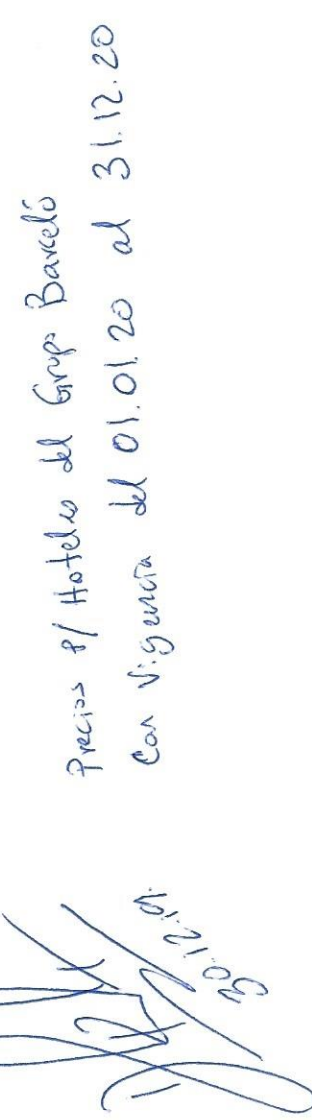 Precios p/ Hoteles del Grupo Barceló
Con Vigencia del 01.01.20 al 31.12.20
30.12.19.